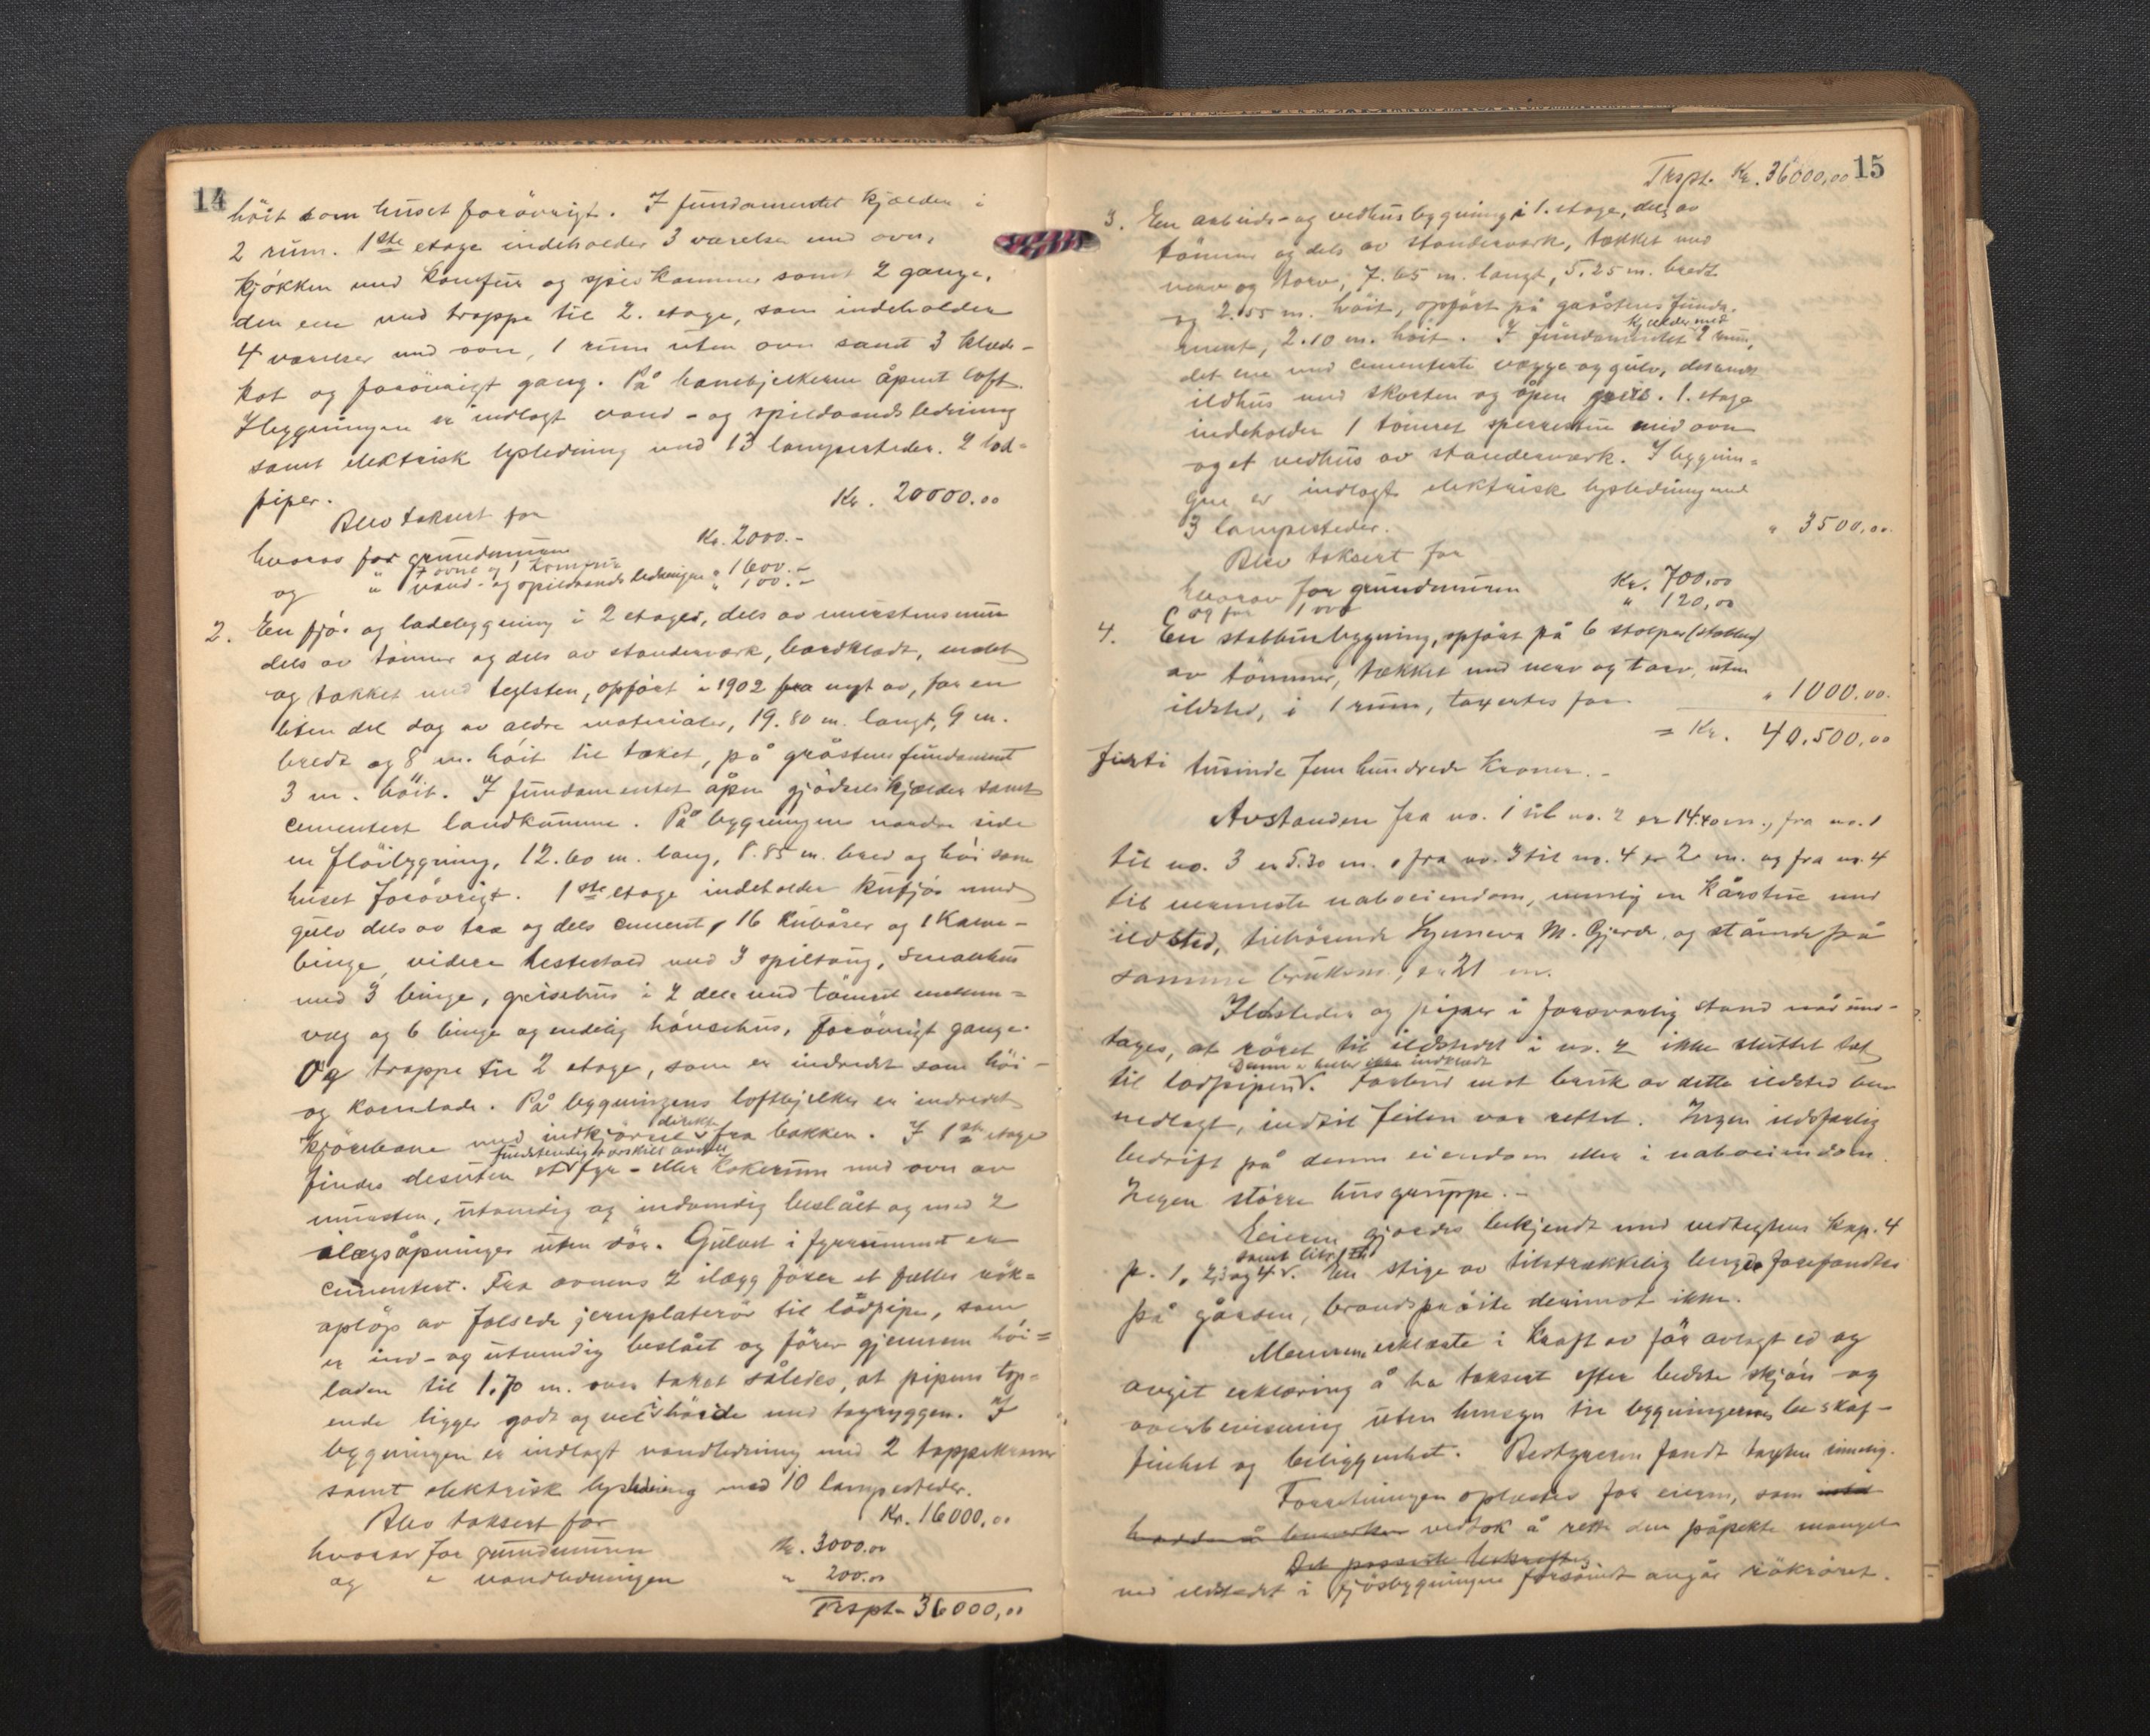 14
höit som huset forövrigt. I fundamentet kjælder i
2 rum. 1ste etage indeholder 3 værelser med ovn,
kjökken med komfur og spiskammer samt 2 gange,
den ene med trappe til 2. etage, som indeholder
4 værelser med ovn, 1 rum uten ovn samt 3 klæde-
kot og forövrigt gang. På hanebjelkerne åpent loft.
I bygningen er indlagt vand- og spildvandsledning
samt elektrisk lysledning med 13 lampesteder. 2 lod-
piper.
Blev taksert for Kr. 20000.00
hvorav for grundmuren Kr. 2000.-
7 ovne og 1 komfur " 1600.-
og " vand- og spildvandsledningen " 100.-
2. En fjös og ladebygning i 2 etager, dels av murstensmur
dels av tömmer og dels av stenderverk, bordklædt, malet
og tækket med teglsten, opfört i 1902 fra nyt av, for en
liten del dog av ældre materialer, 19.80 m. langt, 9 m.
bredt og 8 m. höit til taket, på gråstens fundament
3 m. höit. I fundamentet åpen gjödselskjælder samt
cementert landkumme. På bygningens nordre side
en flöibygning, 12.60 m. lang, 8.85 m. bred og höi som
huset forövrigt. 1ste etage indeholder kufjös med
gulv dels av træ og dels cement, 16 kubåser og 1 kalve-
binge, videre hestestald med 3 spiltaug, smalehus
med 3 binge, grisehus i 2 dele med tömret mellem-
væg og 6 binge og endelig hönsehus, forövrigt gange.
Og trappe til 2 etage, som er indredet som höi-
og kornlade. På bygningens loftbjelker er indredet
direkte
kjörebane med indkjörsel fra bakken. I 1ste etage
fuldstendig avskilt
findes desuten et fyr- eller kokerum med ovn av
mursten, utvendig og indvendig beslået og med 2
ilægsåpninger uten dör. Gulvet i fyrrummet er
cementert. Fra ovnens 2 ilægg förer et fælles rök-
opløp av falsede jernplaterör til lodpipe, som
er ind- og utvendig beslået og förer gjennem höi-
laden til 1.70 m. over taket således, at pipens top-
ende ligger godt og vel i höide med tagryggen. I
bygningen er indlagt vandledning med 2 tappekraner
samt elektrisk lysledning med 10 lampesteder.
Blev taksert for Kr. 16000,00
hvorav for grundmuren Kr. 3000.00
og " vandledningen " 200.00
Trspt. 36000,00
15
Trspt. Kr. 36000,00
3. En arbeids- og vedhusbygning i 1. etage, dels av
tömmer og dels av stenderverk, tækket med
næver og torv, 7.65 m. langt, 5.25 m. bredt
og 2.55 m. höit, opfört på gråstens funda-
kjælder med
ment, 2.10 m. höit. I fundamentet 2 rum,
det ene med cementerte vægge og gulv, det andet
ildhus med skorsten og åpen . 1. etage
indeholder 1 tömret med ovn
og et vedhus av stenderverk. I bygnin-
gen er indlagt elektrisk lysledning med
3 lampesteder.
Blev taksert for " 3500,00
hvorav for grundmuren Kr. 700,00
og for 1 ovn " 120,00
4. En stabbursbygning, opfört på 6 stolper (stabber)
av tömmer, tækket med næver og torv, uten
ildsted, i 1 rum, taxertes for " 1000.00
= Kr. 40.500,00
firti tusinde fem hundrede kroner.-
Avstanden fra no. 1 til no. 2 er 14.40 m., fra no. 1
til no. 3 er 5.30 m., fra no. 3 til no. 4 er 2 m. og fra no. 4
til nærmeste naboeiendom, nemlig en kårstue med
ildsted, tilhörende Synneva M. Gjerde, og stående på
samme bruksno., er 21 m.
Ildsteder og piper i forsvarlig stand når und-
tages, at röret til ildstedet i no. 2 ikke sluttet tæt
Denne er heller ikke indklædt
til lodpipen. Forbud mot bruk av dette ildsted blev
nedlagt, indtil feilen var rettet. Ingen ildsfarlig
bedrift på denne eiendom eller i naboeiendom.
Ingen större husgruppe.-
Eieren gjordes bekjendt med vedtægtens kap. 4
samt
p. 1, 2, 3 og 4. En stige av tilstrækkelig lengde forefandtes
på gården, brandspröite derimot ikke.
Mænnene erklærte i kraft av för avlagt ed og
avgit erklæring å ha taksert efter bedste skjön og
overbevisning uten hensyn til bygningernes beskaf-
fenhet og beliggenhet. Bestyreren fandt taxten rimelig.
Forretningen oplæstes for eieren, som
vedtok å rette den påpekte mangel
ved ildstedet i fjösbygningen forsåvidt angår rökröret.